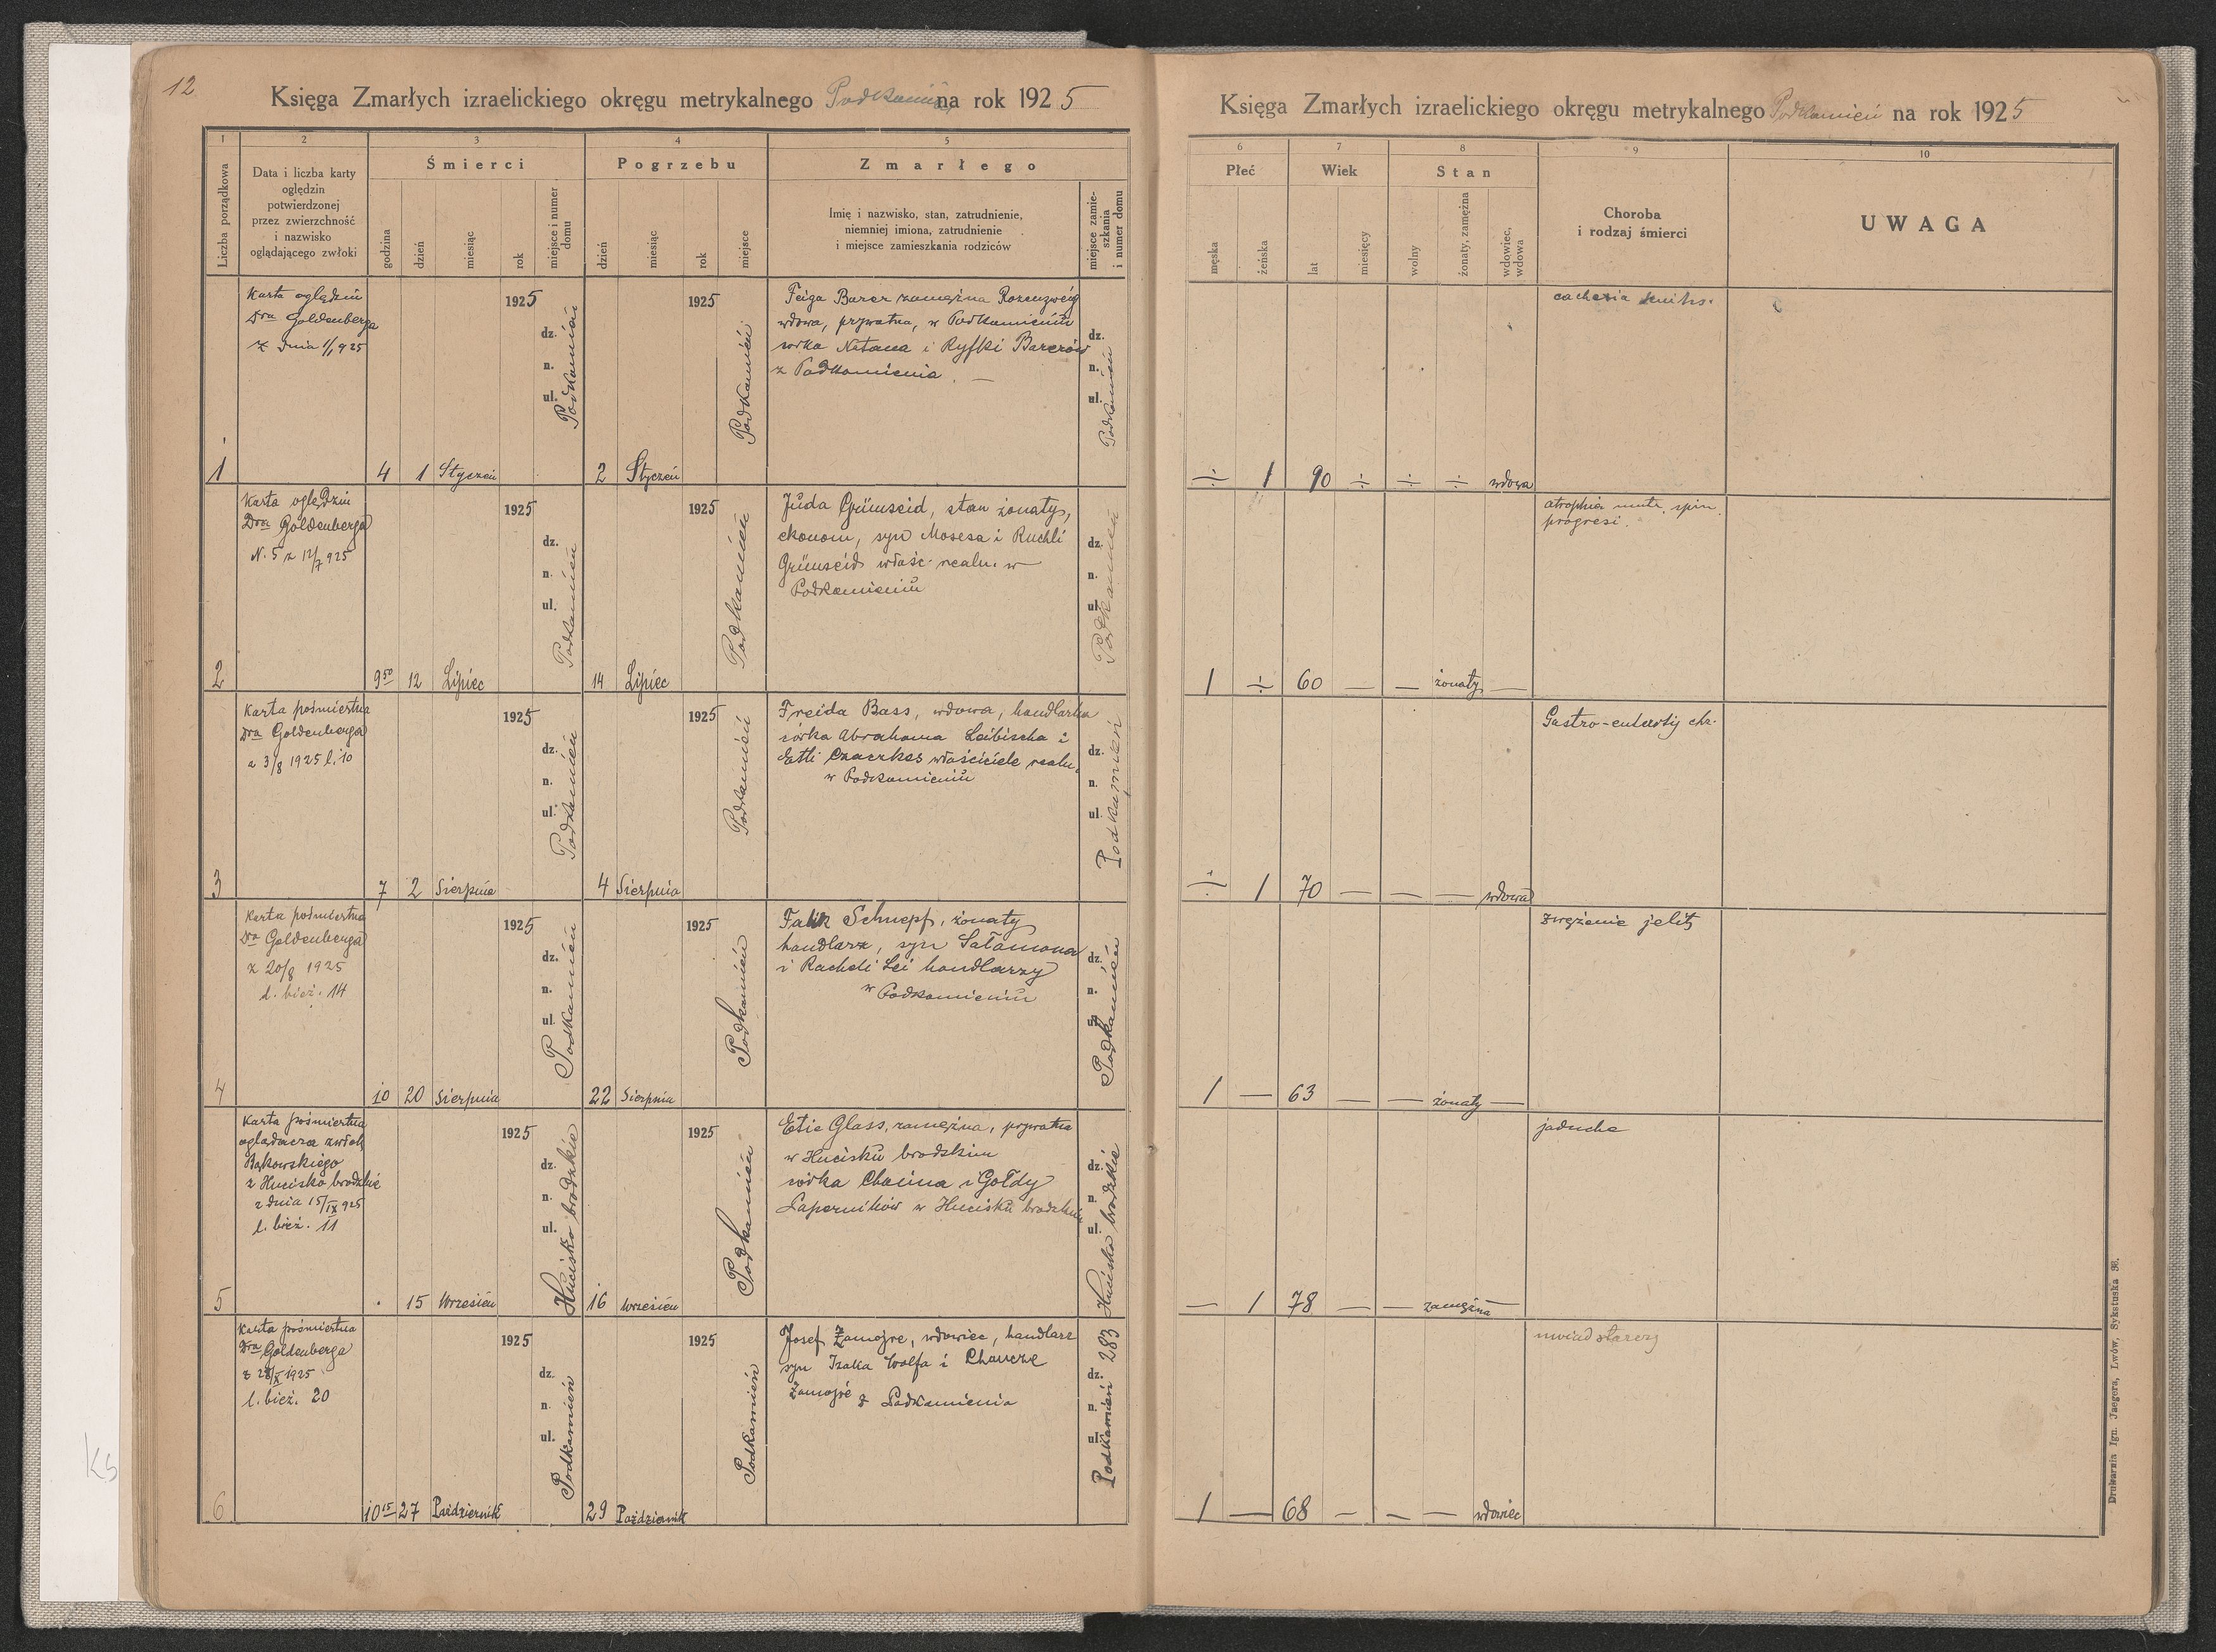 12
Księga Zmarłych izraelickiego okręgu metrykalnego Podkamień na rok 1925
1 2 3 4 5
Liczba porządkowa
Data i liczba karty
oględzin
potwierdzonej
przez zwierzchność
i nazwisko
oglądającego zwłoki
Śmierci
godzina
dzień
miesiąc
rok
miejsce i numer
domu
Pogrzebu
dzień
miesiąc
rok
miejsce
Zmarłego
Imię i nazwisko, stan, zatrudnienie,
niemniej imiona, zatrudnienie
i miejsce zamieszkania rodziców
miejsce zamie-
szkania
i numer domu
1
Karta oględzin
Dra Goldenberga
z dnia 1/1 925
4 1 Styczeń 1925
dz.
n.
ul.
Podkamień
2 Styczeń 1925
Podkamień
Feiga Barer zamężna Rozenzweig
wdowa, prywatna, w Podkamieniu
córka Natana i Ryfki Barerów
z Podkamienia. —
dz.
n.
ul.
Podkamień
2
Karta oględzin
Dra Goldenberga
N. 5 z 12/7 925
9 50 12 Lipiec 1925
dz.
n.
ul.
Podkamień
14 Lipiec 1925
Podkamień
Juda Grünseid, stan żonaty,
ekonom, syn Mosesa i Ruchli
Grünseid właśc. realn. w
Podkamieniu
dz.
n.
ul.
Podkamień
3
Karta pośmiertna
Dra Goldenberga
z 3/8 1925 l. 10
7 2 Sierpnia 1925
dz.
n.
ul.
Podkamień
4 Sierpnia 1925
Podkamień
Freida Bass, wdowa, handlarka
córka Abrahama Leibischa i
Etli Czaczkes właściciele realn.
w Podkamieniu
dz.
n.
ul.
Podkamień
4
Karta pośmiertna
Dra Goldenberga
z 20/8 1925
l. bież. 14
10 20 Sierpnia 1925
dz.
n.
ul.
Podkamień
22 Sierpnia 1925
Podkamień
Falik Schnepf, żonaty
handlarz, syn Salamona
i Racheli Lei handlarzy
w Podkamieniu
dz.
n.
ul.
Podkamień
5
Karta pośmiertna
oglądacza zwłok
Bąkowskiego
z Hucisko brodzkie
z dnia 15/IX 925
l. bież. 11
15 Wrzesień 1925
dz.
n.
ul.
Hucisko brodzkie
16 Wrzesień 1925
Podkamień
Etie Glass, zamężna, prywatna
w Hucisku brodzkim
córka Chaima i Gołdy
Laperników w Hucisku brodzkim
dz.
n.
ul.
Hucisko brodzkie
6
Karta pośmiertna
Dra Goldenberga
z 28/X 1925
l. bież. 20
10 15 27 Październik 1925
dz.
n.
ul.
Podkamień
29 Październik 1925
Podkamień
Josef Zamojre, wdowiec, handlarz
syn Izaka Wolfa i Chancze
Zamojre z Podkamienia
dz.
n.
ul.
Podkamień 283
Księga Zmarłych izraelickiego okręgu metrykalnego Podkamień na rok 1925
6 7 8 9 10
Płeć
męska
żeńska
Wiek
lat
miesięcy
Stan
wolny
żonaty, zamężna
wdowiec,
wdowa
Choroba
i rodzaj śmierci
UWAGA
÷ 1 90 ÷ ÷ ÷ wdowa
cachexia senilis.
1 ÷ 60 — — żonaty —
atrophia spin.
progresi.
÷ 1 70 — — — wdowa
Gastro-enteritis chr.
1 — 63 — — żonaty —
zwężenie jelit
— 1 78 — — zamężna —
jaducha
1 — 68 — — — wdowiec
uwiad starczy
Drukarnia Ign. Jaegera, Lwów, Sykstuska